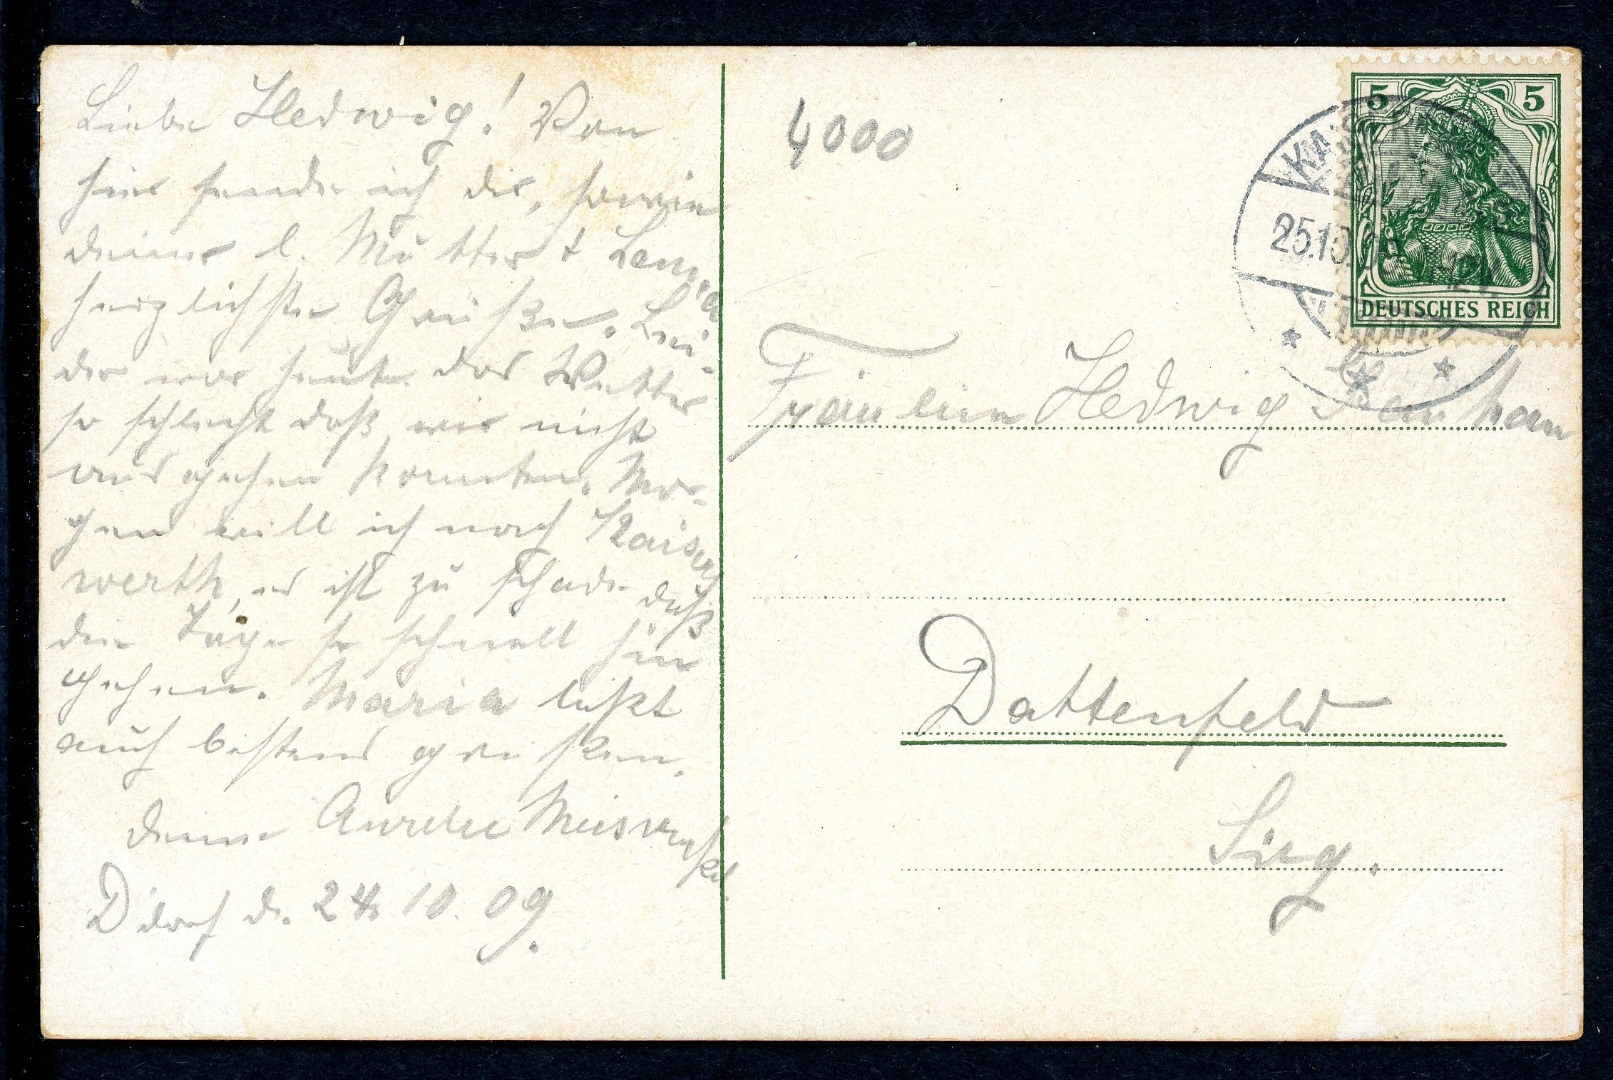 Liebe Hedwig! Von
hier sende ich dir, sowie
deiner l. Mutter +
herzlichste Grüße. Lei-
der war heute das Wetter
so schlecht daß wir nicht
ausgehen konnten. Mor-
gen will ich nach Kaisers
werth, es ist zu schade daß
die Tage so schnell hin
gehen. Maria läßt
auch bestens grüßen.
Deine Aurelie
D'dorf d. 24. 10. 09.
4000
5 5
25.10.09
DEUTSCHES REICH
Fräulein Hedwig
Dattenfeld
Sieg.